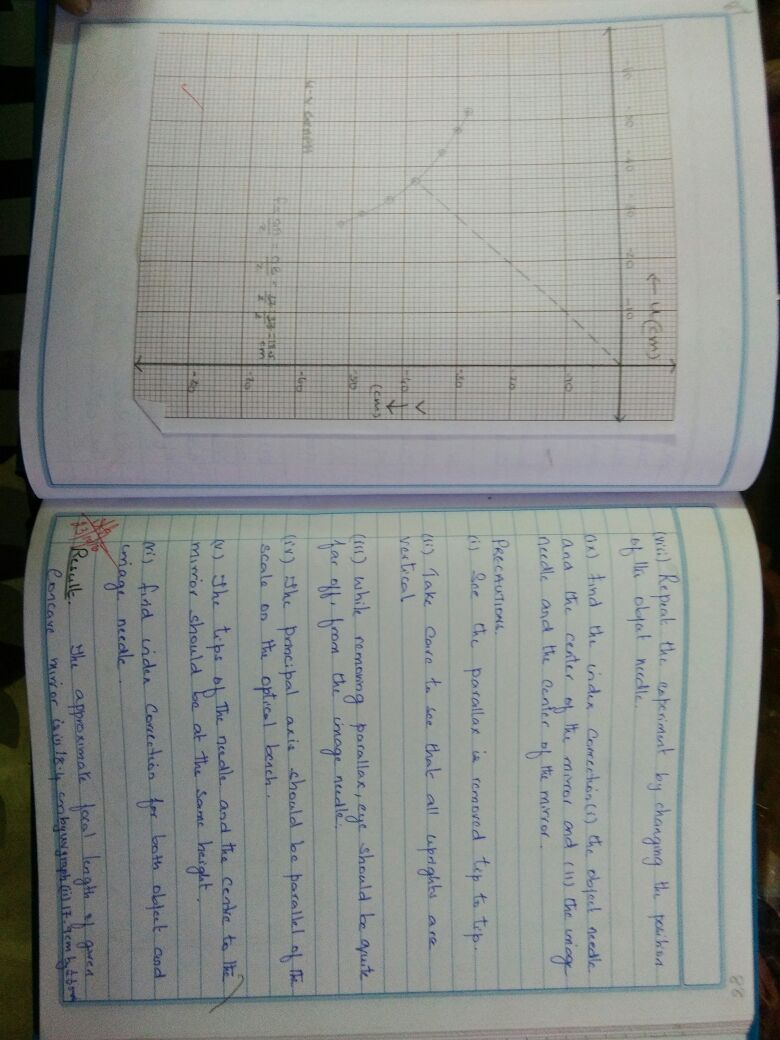 88
(viii) Repeat the experiment by changing the position
of the object needle.
(ix) find the index correction (i) the object needle
and the center of the mirror and (ii) the image
needle and the center of the mirror.
PRECAUTIONS
(i) See the parallax is removed tip to tip.
(ii) Take care to see that all uprights are
vertical
(iii) While removing parallax, eye should be quite
far off, from the image needle.
(iv) The principal axis should be parallel of the
scale on the optical bench.
(v) The tips of the needle and the centre to the
mirror should be at the same height.
(vi) find index correction for both object and
image needle.
Result. The approximate focal length of given
concave mirror is (i) 18.4 cm by uv graph (ii) 17.9 cm by
← u (cm)
-50
-40
-30
-20
-10
v
(cm)
-10
-20
-30
-40
-50
-60
-70
-80
u-v GRAPH
cm